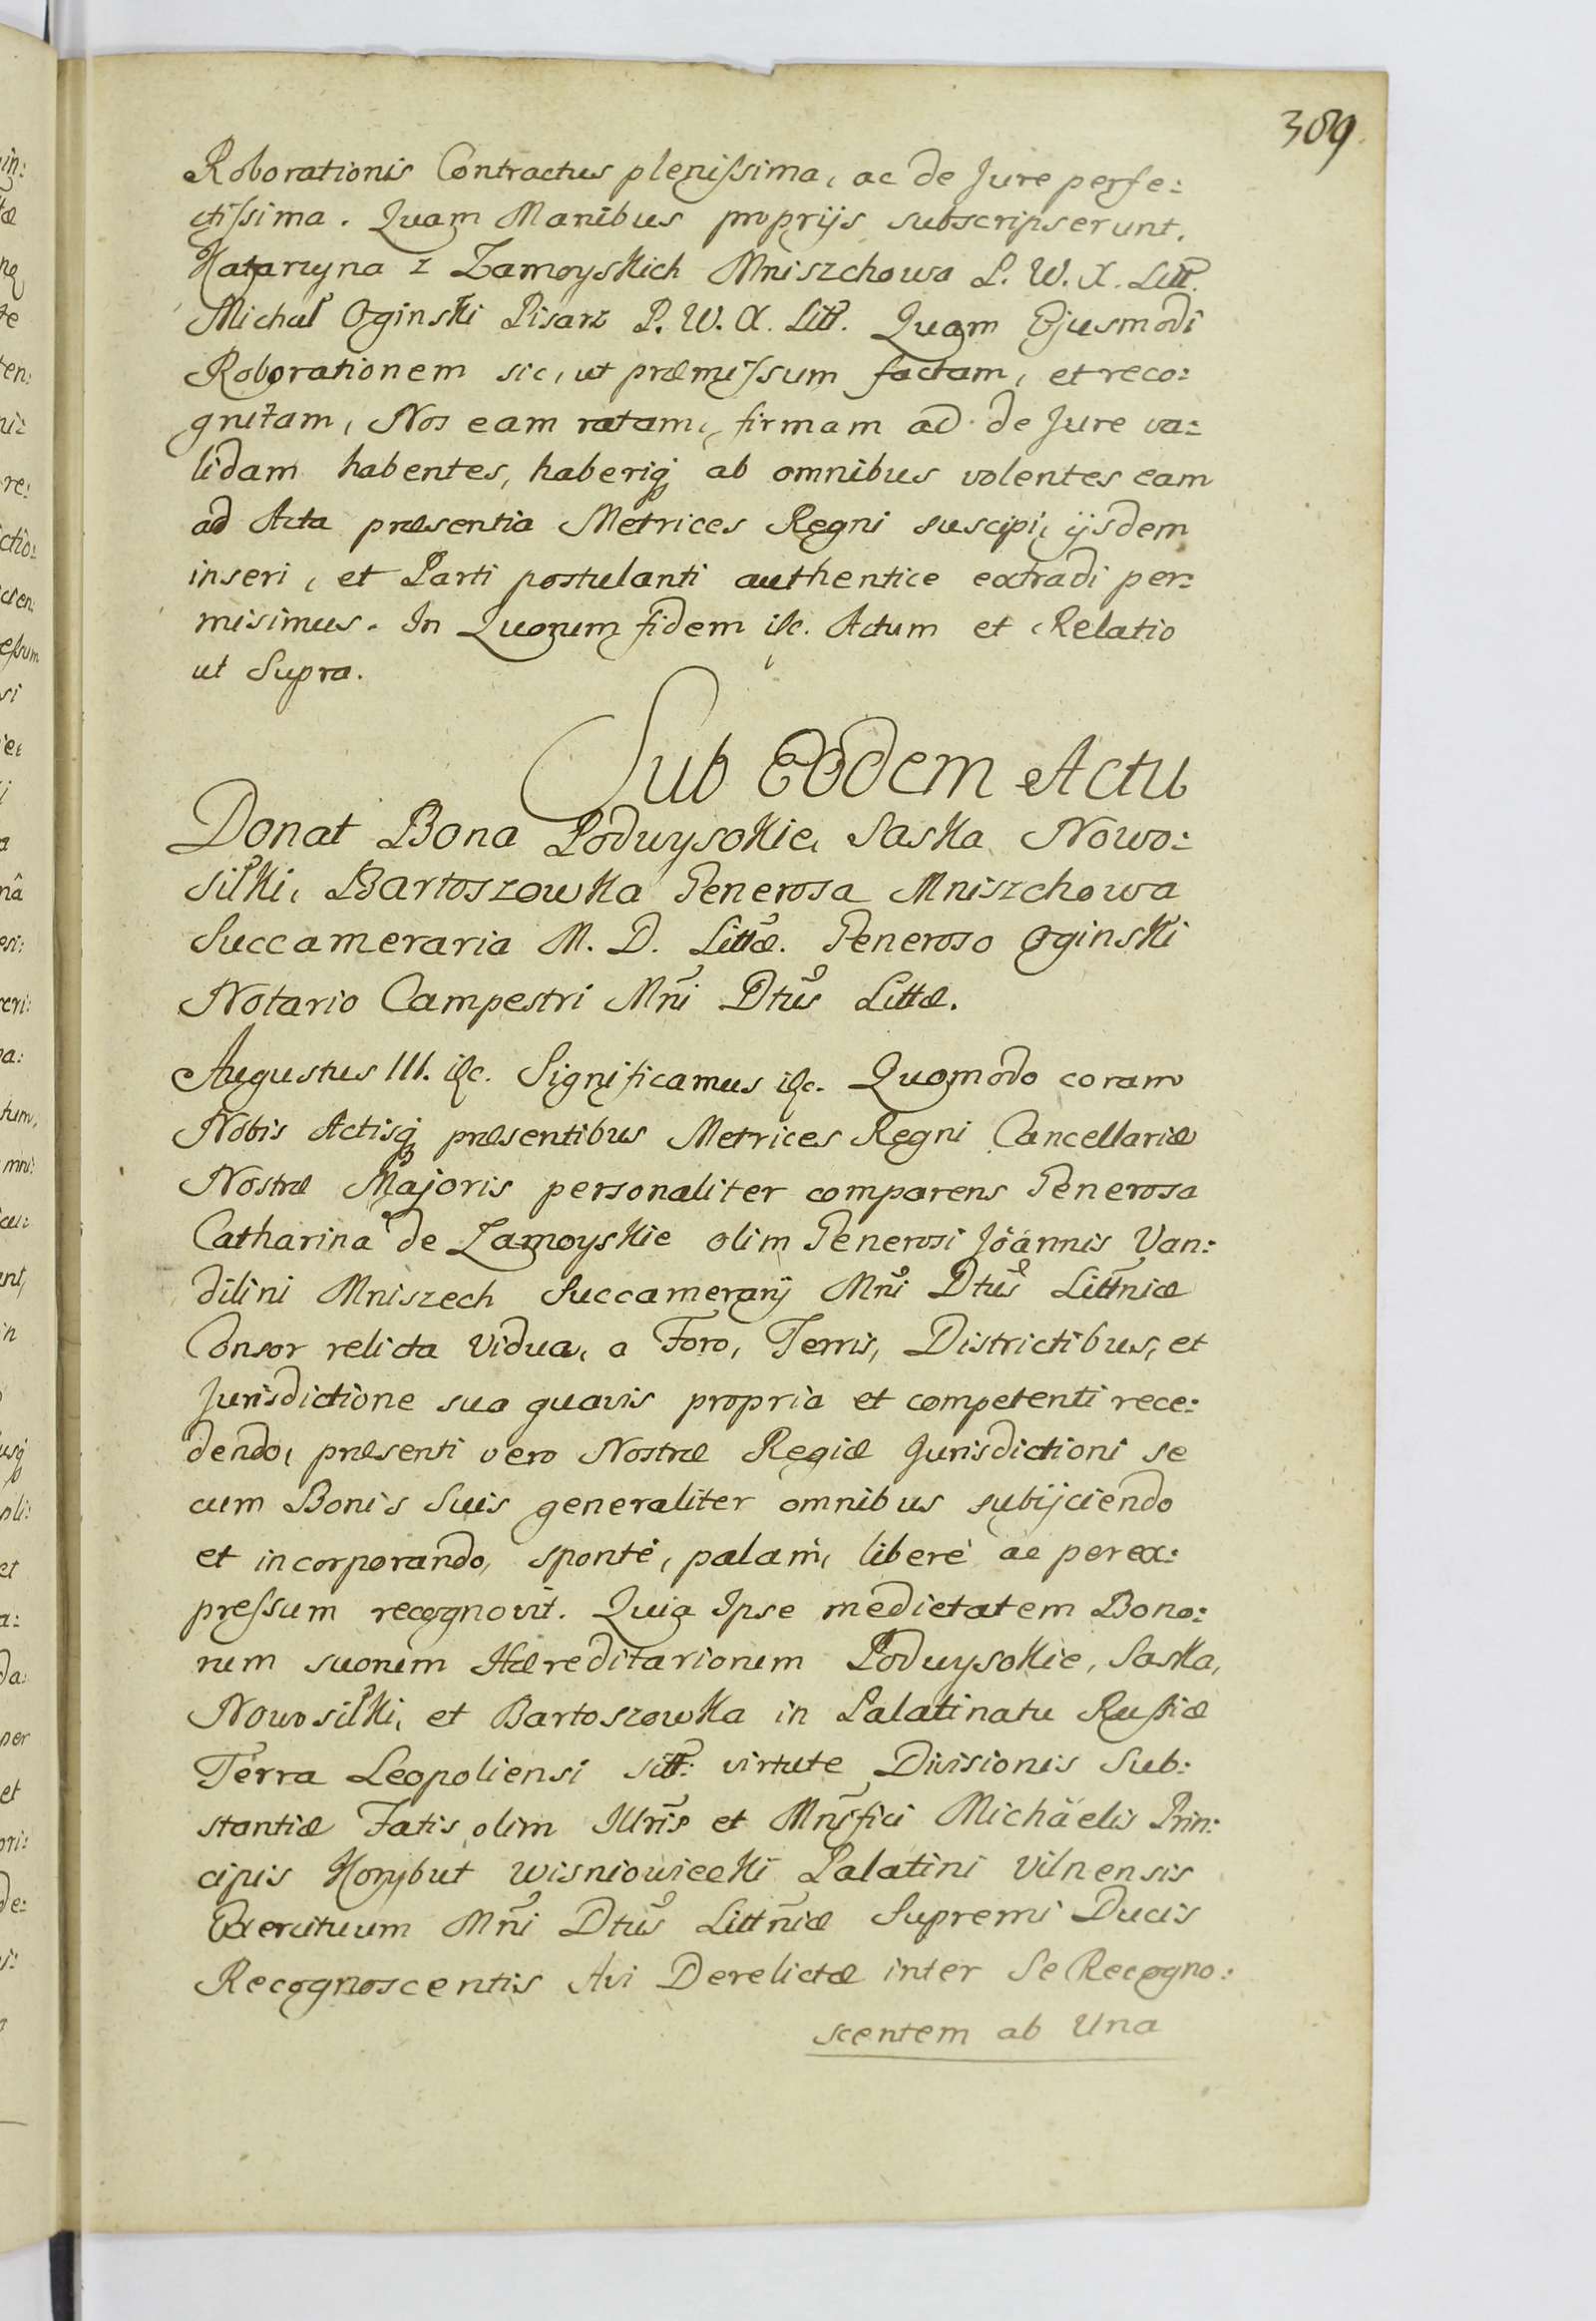 389.
Roborationis Contractus plenissima, ac de Jure perfe:
ctissima. Quam Manibus proprijs subscripserunt.
Katarzyna z Zamoyskich Mniszchowa P. W. X. Litt.
Michał Oginski Pisarz P. W. X. Litt. Quam Ejusmodi
Roborationem sic, ut præmissum factam, et reco:
gnitam, Nos eam ratam, firmam ac de Jure va:
lidam habentes, haberiq ab omnibus volentes eam
ad Acta præsentia Metrices Regni suscipi, ijsdem
inseri, et Parti postulanti authentice extradi per:
misimus. In Quorum fidem &c. Actum et Relatio
ut Supra.
Sub Eodem Actu
Donat Bona Podwysokie, Saska Nowo:
siłki, Bartoszowka Generosa Mniszchowa
Succameraria M. D. Littæ. Generoso Oginski
Notario Campestri Mni Dtus Littæ.
Augustus III. &c. Significamus &c. Quomodo coram
Nobis Actisq præsentibus Metrices Regni Cancellariæ
Nostræ Majoris personaliter comparens Generosa
Catharina de Zamoyskie olim Generosi Joannis Van:
dilini Mniszech Succamerarij Mni Dtus Littniæ
Consor relicta Vidua, a Foro, Terris, Districtibus, et
Jurisdictione sua quavis propria et competenti rece:
dendo, præsenti vero Nostræ Regiæ Jurisdictioni se
cum Bonis Suis generaliter omnibus subijciendo
et incorporando, sponté, palam, liberé ac per ex:
pressum recognovit. Quia Ipse medietatem Bono:
rum suorum Hæreditariorum Podwysokie, Saska,
Nowosiłki, et Bartoszowka in Palatinatu Russiæ
Terra Leopoliensi sitt: virtute Divisionis Sub:
stantiæ Fatis olim Illris et Mnifici Michäelis Prin:
cipis Korybut Wisniowiecki Palatini Vilnensis
Exercituum Mni Dtus Littniæ Supremi Ducis
Recognoscentis Avi Derelictæ inter Se Recogno:
scentem ab Una